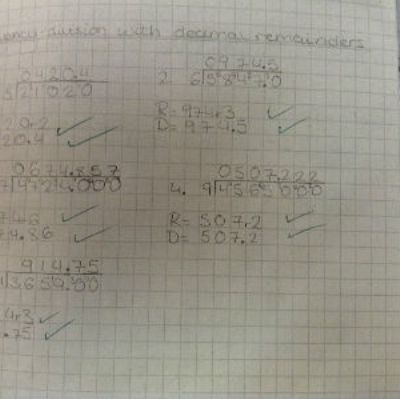 division with decimal remainders
0420.4
5 21020
20.4
2. 0974.5
6 5847.0
R= 974r3
D= 974.5
0674.857
7 4724.000
74r6
74.86
4. 0507.222
9 4565.000
R= 507r2
D= 507.2
914.75
3659.00
4r3
.75